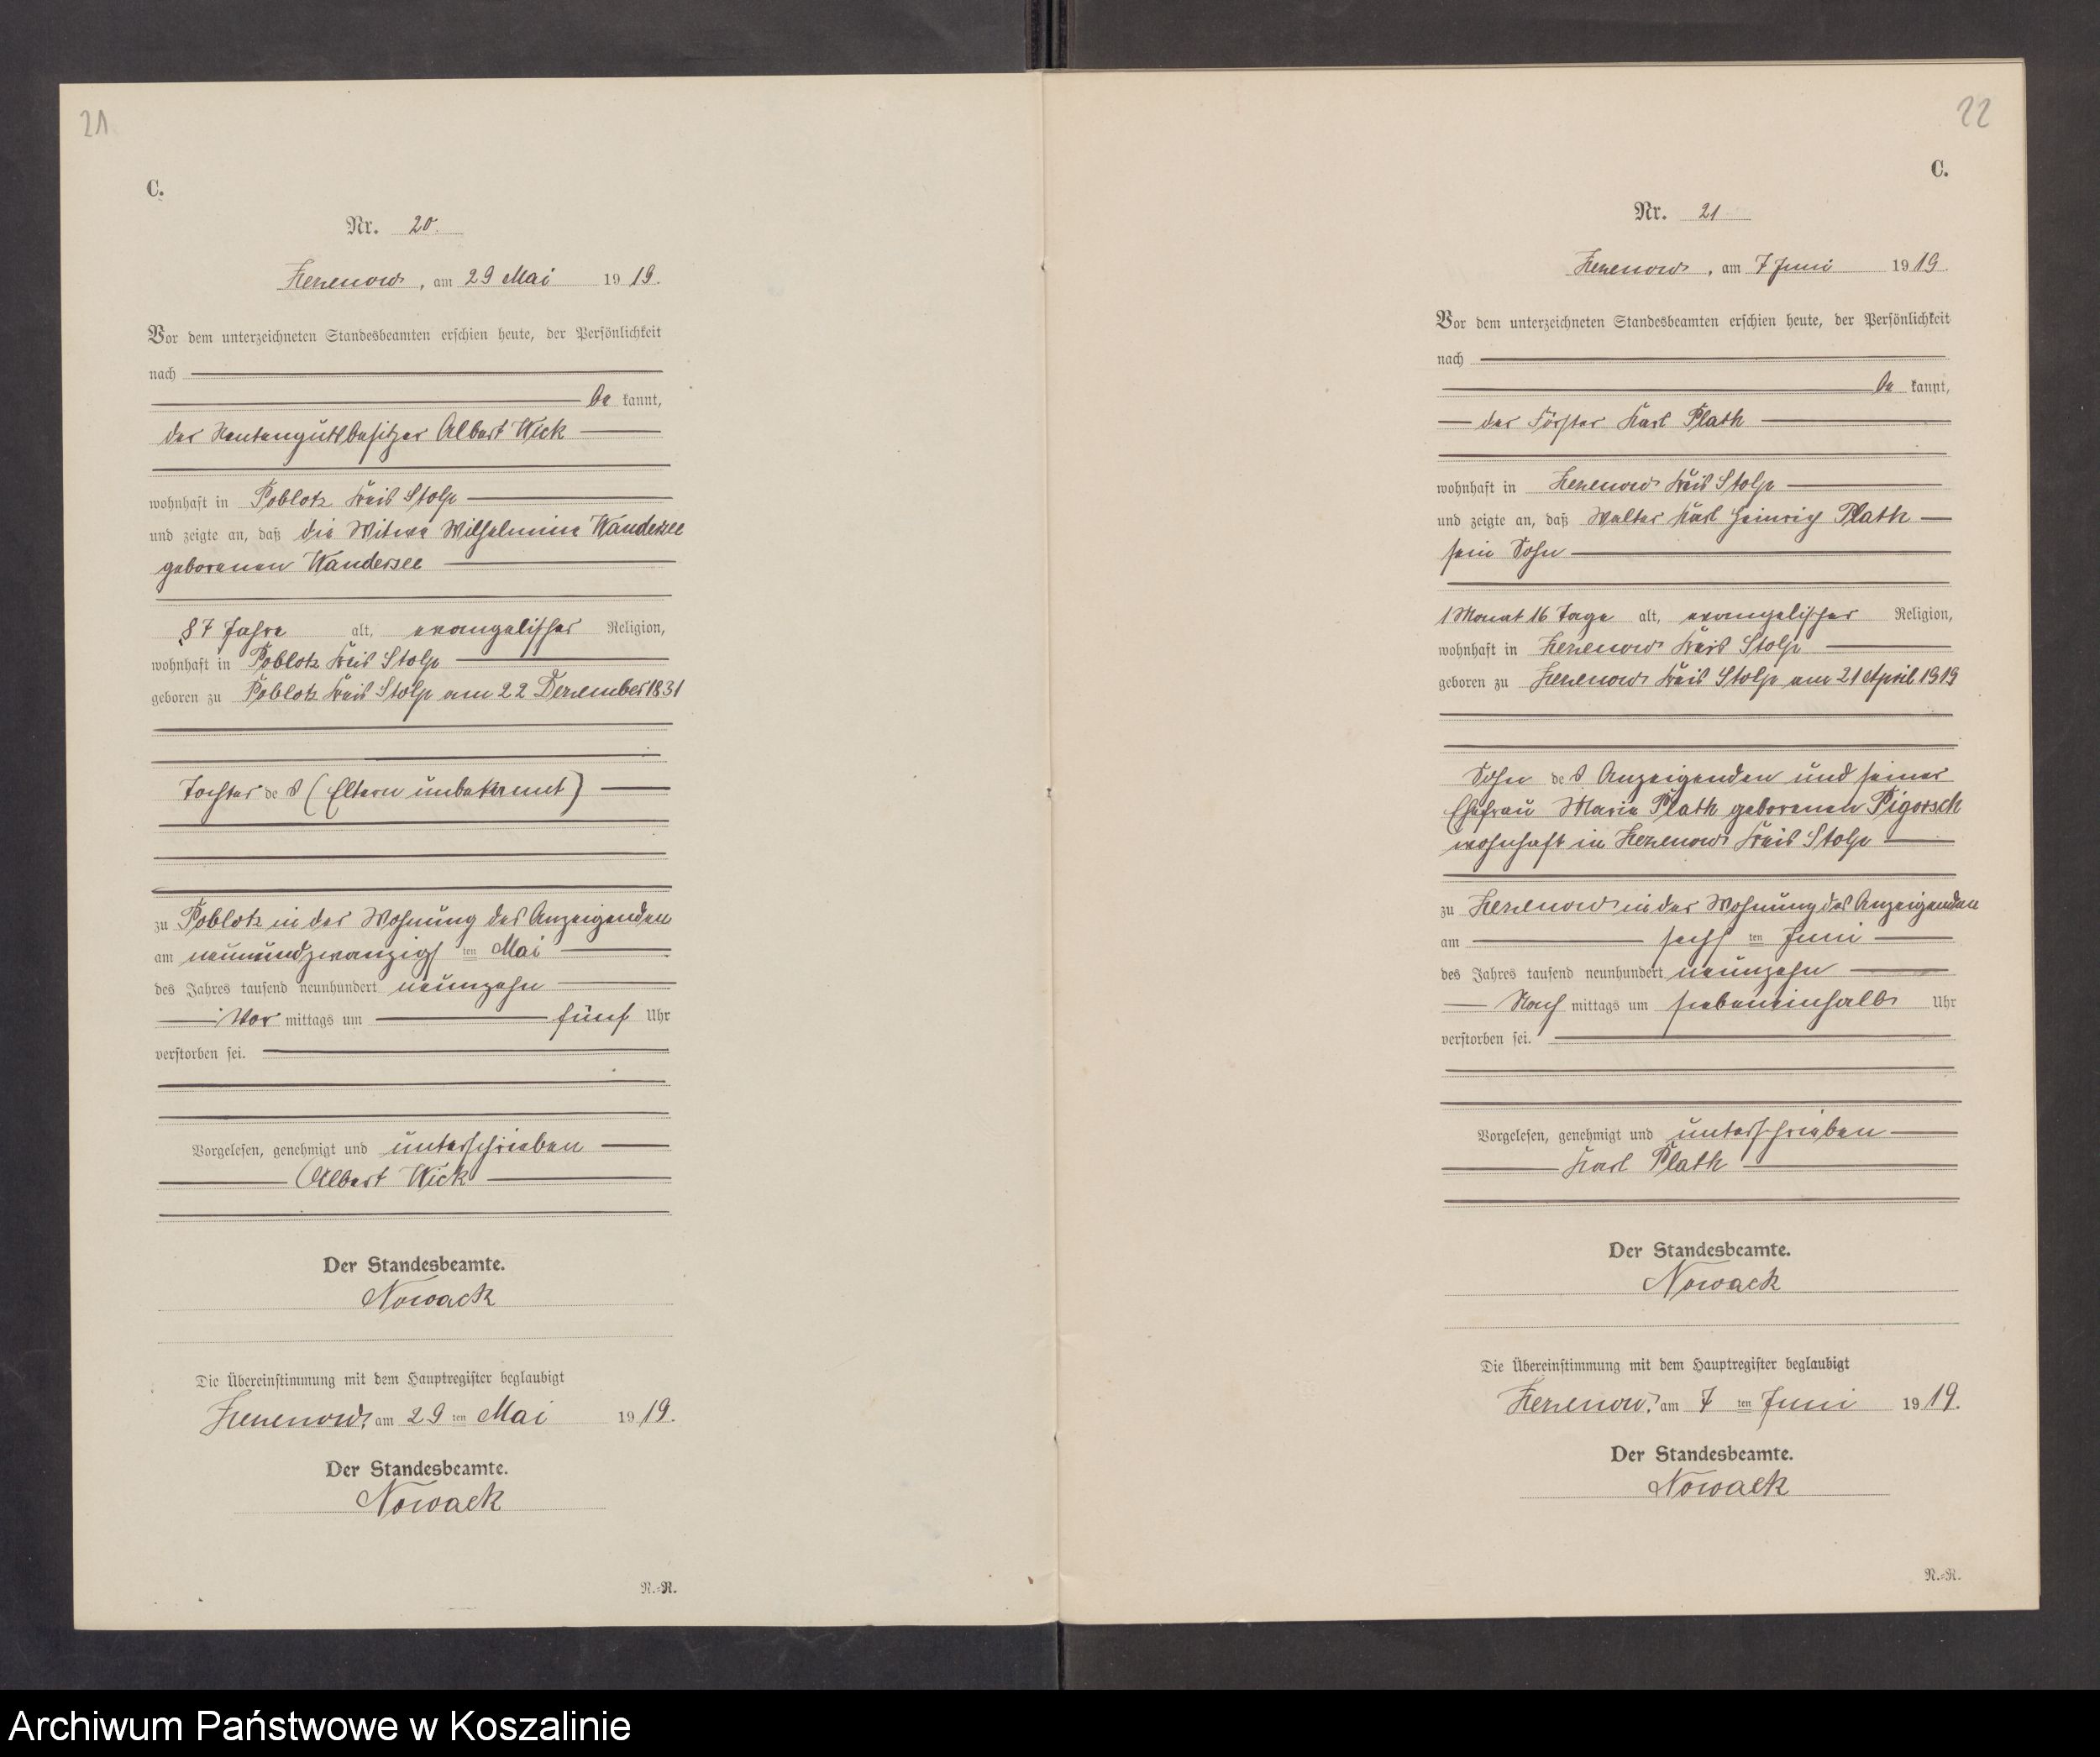 21
C.
Nr. 20.
Zezenow, am 29 Mai 1919.
Vor dem unterzeichneten Standesbeamten erschien heute, der Persönlichkeit
nach
be kannt,
der Rentengutsbesitzer Albert Wick
wohnhaft in Poblotz Kreis Stolp
und zeigte an, daß die Witwe Wilhelmine Wandersee
geborenen Wandersee
87 Jahre alt, evangelischer Religion,
wohnhaft in Poblotz Kreis Stolp
geboren zu Poblotz Kreis Stolp am 22 Dezember 1831
Tochter de s (Eltern unbekannt)
zu Poblotz in der Wohnung des Anzeigenden
am neunundzwanzigs ten Mai
des Jahres tausend neunhundert neunzehn
Vor mittags um fünf Uhr
verstorben sei.
Vorgelesen, genehmigt und unterschrieben
Albert Wick
Der Standesbeamte.
Nowack
Die Übereinstimmung mit dem Hauptregister beglaubigt
Zezenow, am 29 ten Mai 1919.
Der Standesbeamte.
Nowack
N.-R.
22
C.
Nr. 21
Zezenow, am 7 Juni 1919.
Vor dem unterzeichneten Standesbeamten erschien heute, der Persönlichkeit
nach
be kannt,
der Förster Karl Plath
wohnhaft in Zezenow Kreis Stolp
und zeigte an, daß Walter Karl Heinrich Plath
sein Sohn
1 Monat 16 Tage alt, evangelischer Religion,
wohnhaft in Zezenow Kreis Stolp
geboren zu Zezenow Kreis Stolp am 21 April 1919
Sohn de s Anzeigenden und seiner
Ehefrau Marie Plath geborenen Pigorsch
wohnhaft in Zezenow Kreis Stolp
zu Zezenow in der Wohnung des Anzeigenden
am sechs ten Juni
des Jahres tausend neunhundert neunzehn
Nach mittags um siebeneinhalb Uhr
verstorben sei.
Vorgelesen, genehmigt und unterschrieben
Karl Plath
Der Standesbeamte.
Nowack
Die Übereinstimmung mit dem Hauptregister beglaubigt
Zezenow, am 7 ten Juni 1919.
Der Standesbeamte.
Nowack
N.-R.
Archiwum Państwowe w Koszalinie